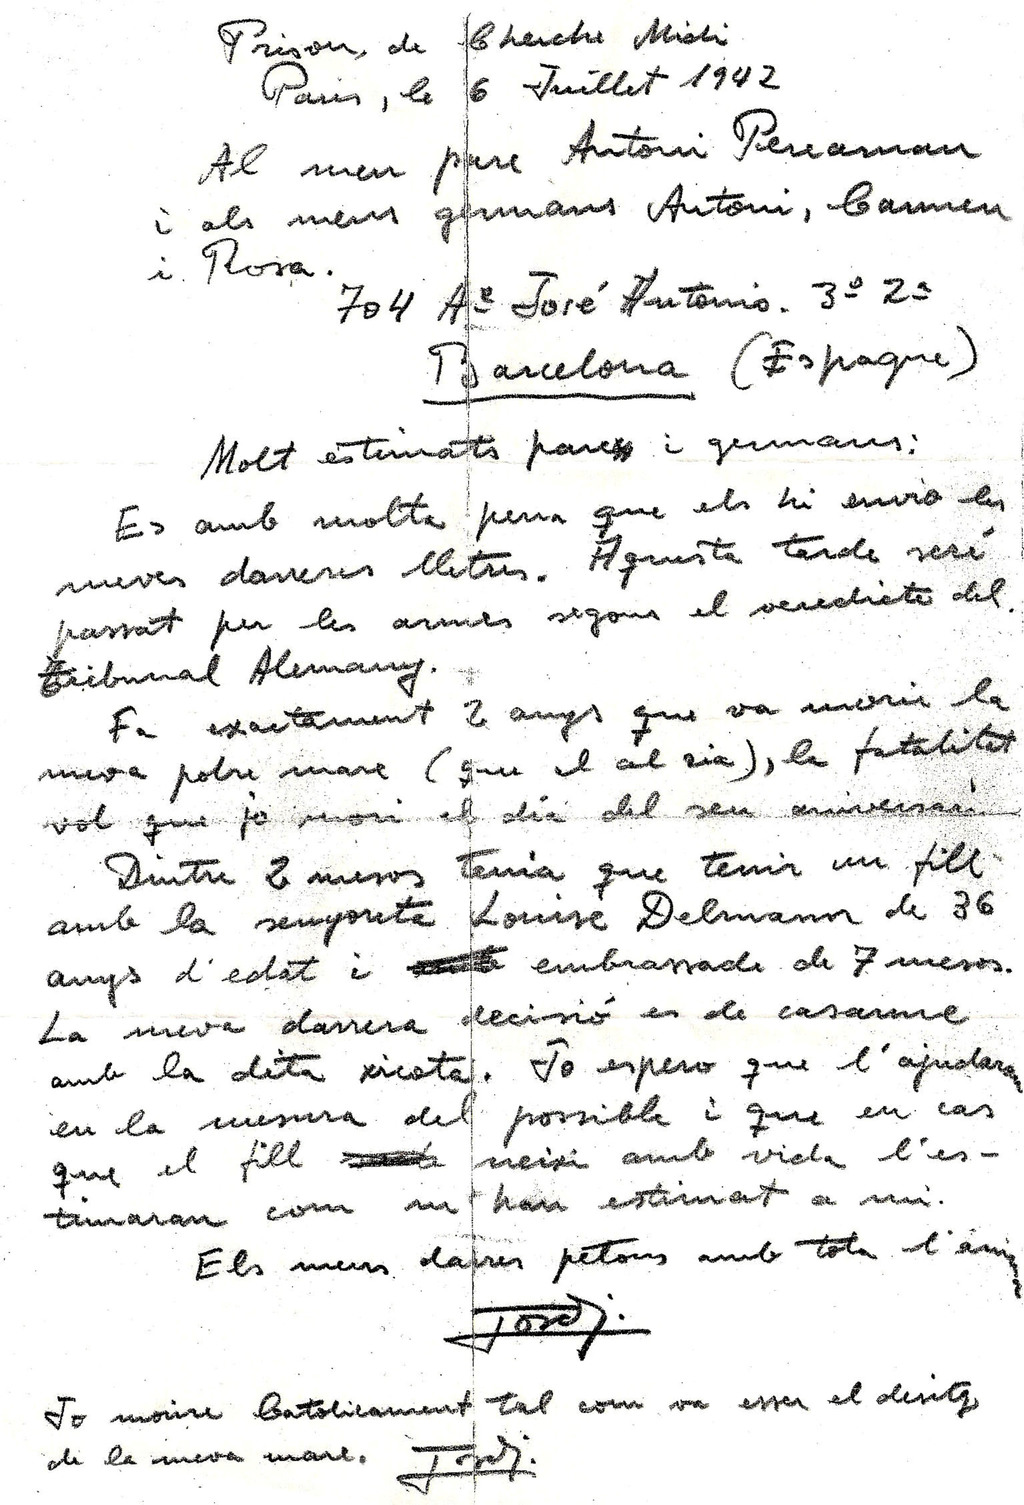 Prison, de Cherche Midi
Paris, le 6 Juillet 1942
Al meu pare Antoni Pereamau
i als meus germans Antoni, Carmen
i Rosa.
704 Aª José Antonio. 3º 2ª
Barcelona (Espagne)
Molt estimats pare i germans:
Es amb molta pena que els hi envio les
meves darreres lletres. Aquesta tarde seré
passat per les armes segons el veredicte del
Tribunal Alemany.
Fa exactament 2 anys que va morir la
meva pobre mare (que al cel sia), la fatalitat
vol que jo mori el dia del seu aniversari
Dintre 2 mesos tenia que tenir un fill
amb la senyoreta Louise Delmann de 36
anys d'edat i embrassade de 7 mesos.
La meva darrera decisió es de casarme
amb la dita xicota. Jo espero que l'ajudaran
en la mesura del possible i que en cas
que el fill neixi amb vida l'es-
timaran com m'han estimat a mi.
Els meus darrers petons amb tota l'ànima
Jordi.
Jo moriré Catolicament tal com va esser el desitg
de la meva mare. Jordi.